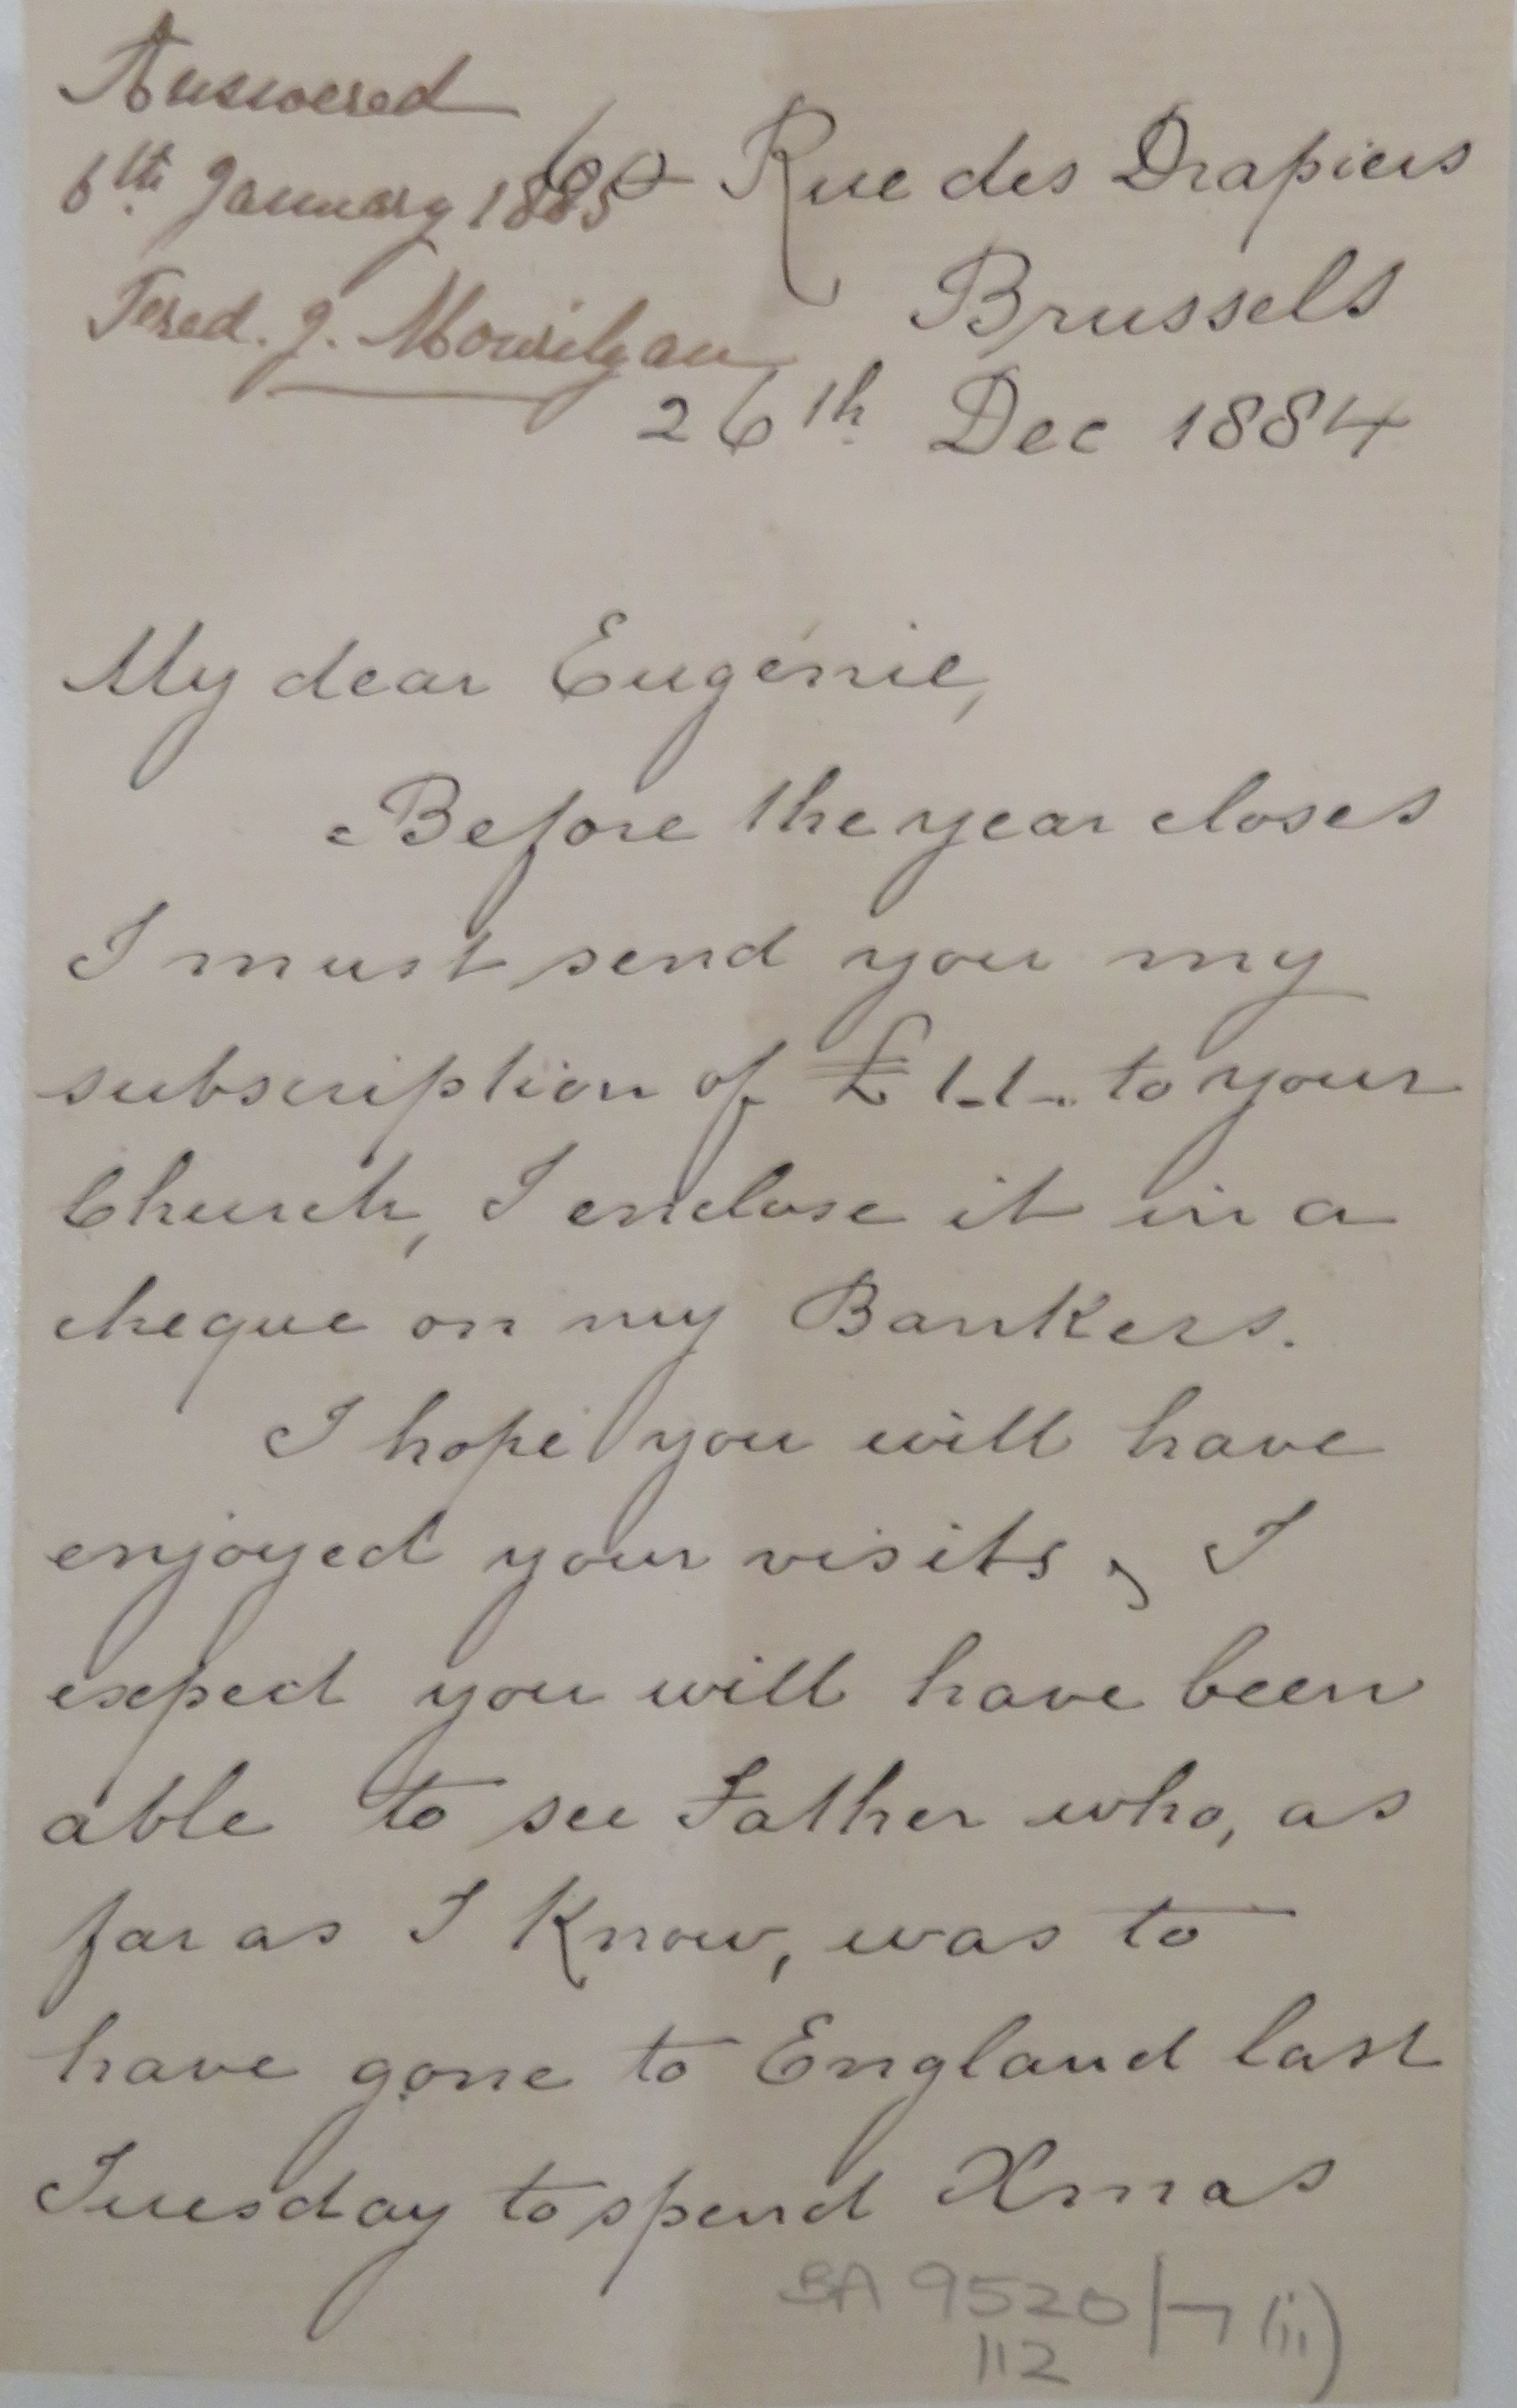 Answered
6th January 1885
Fered. J. Mowilyan
60 Rue des Drapiers
Brussels
26th Dec 1884
My dear Eugénie,
Before the year closes
I must send you my
subscription of £1.1.. to your
Church, I enclose it in a
cheque on my Bankers.
I hope you will have
enjoyed your visits, I
expect you will have been
able to see Father who, as
far as I know, was to
have gone to England last
Tuesday to spend Xmas
BA 9520/7 (ii)
112